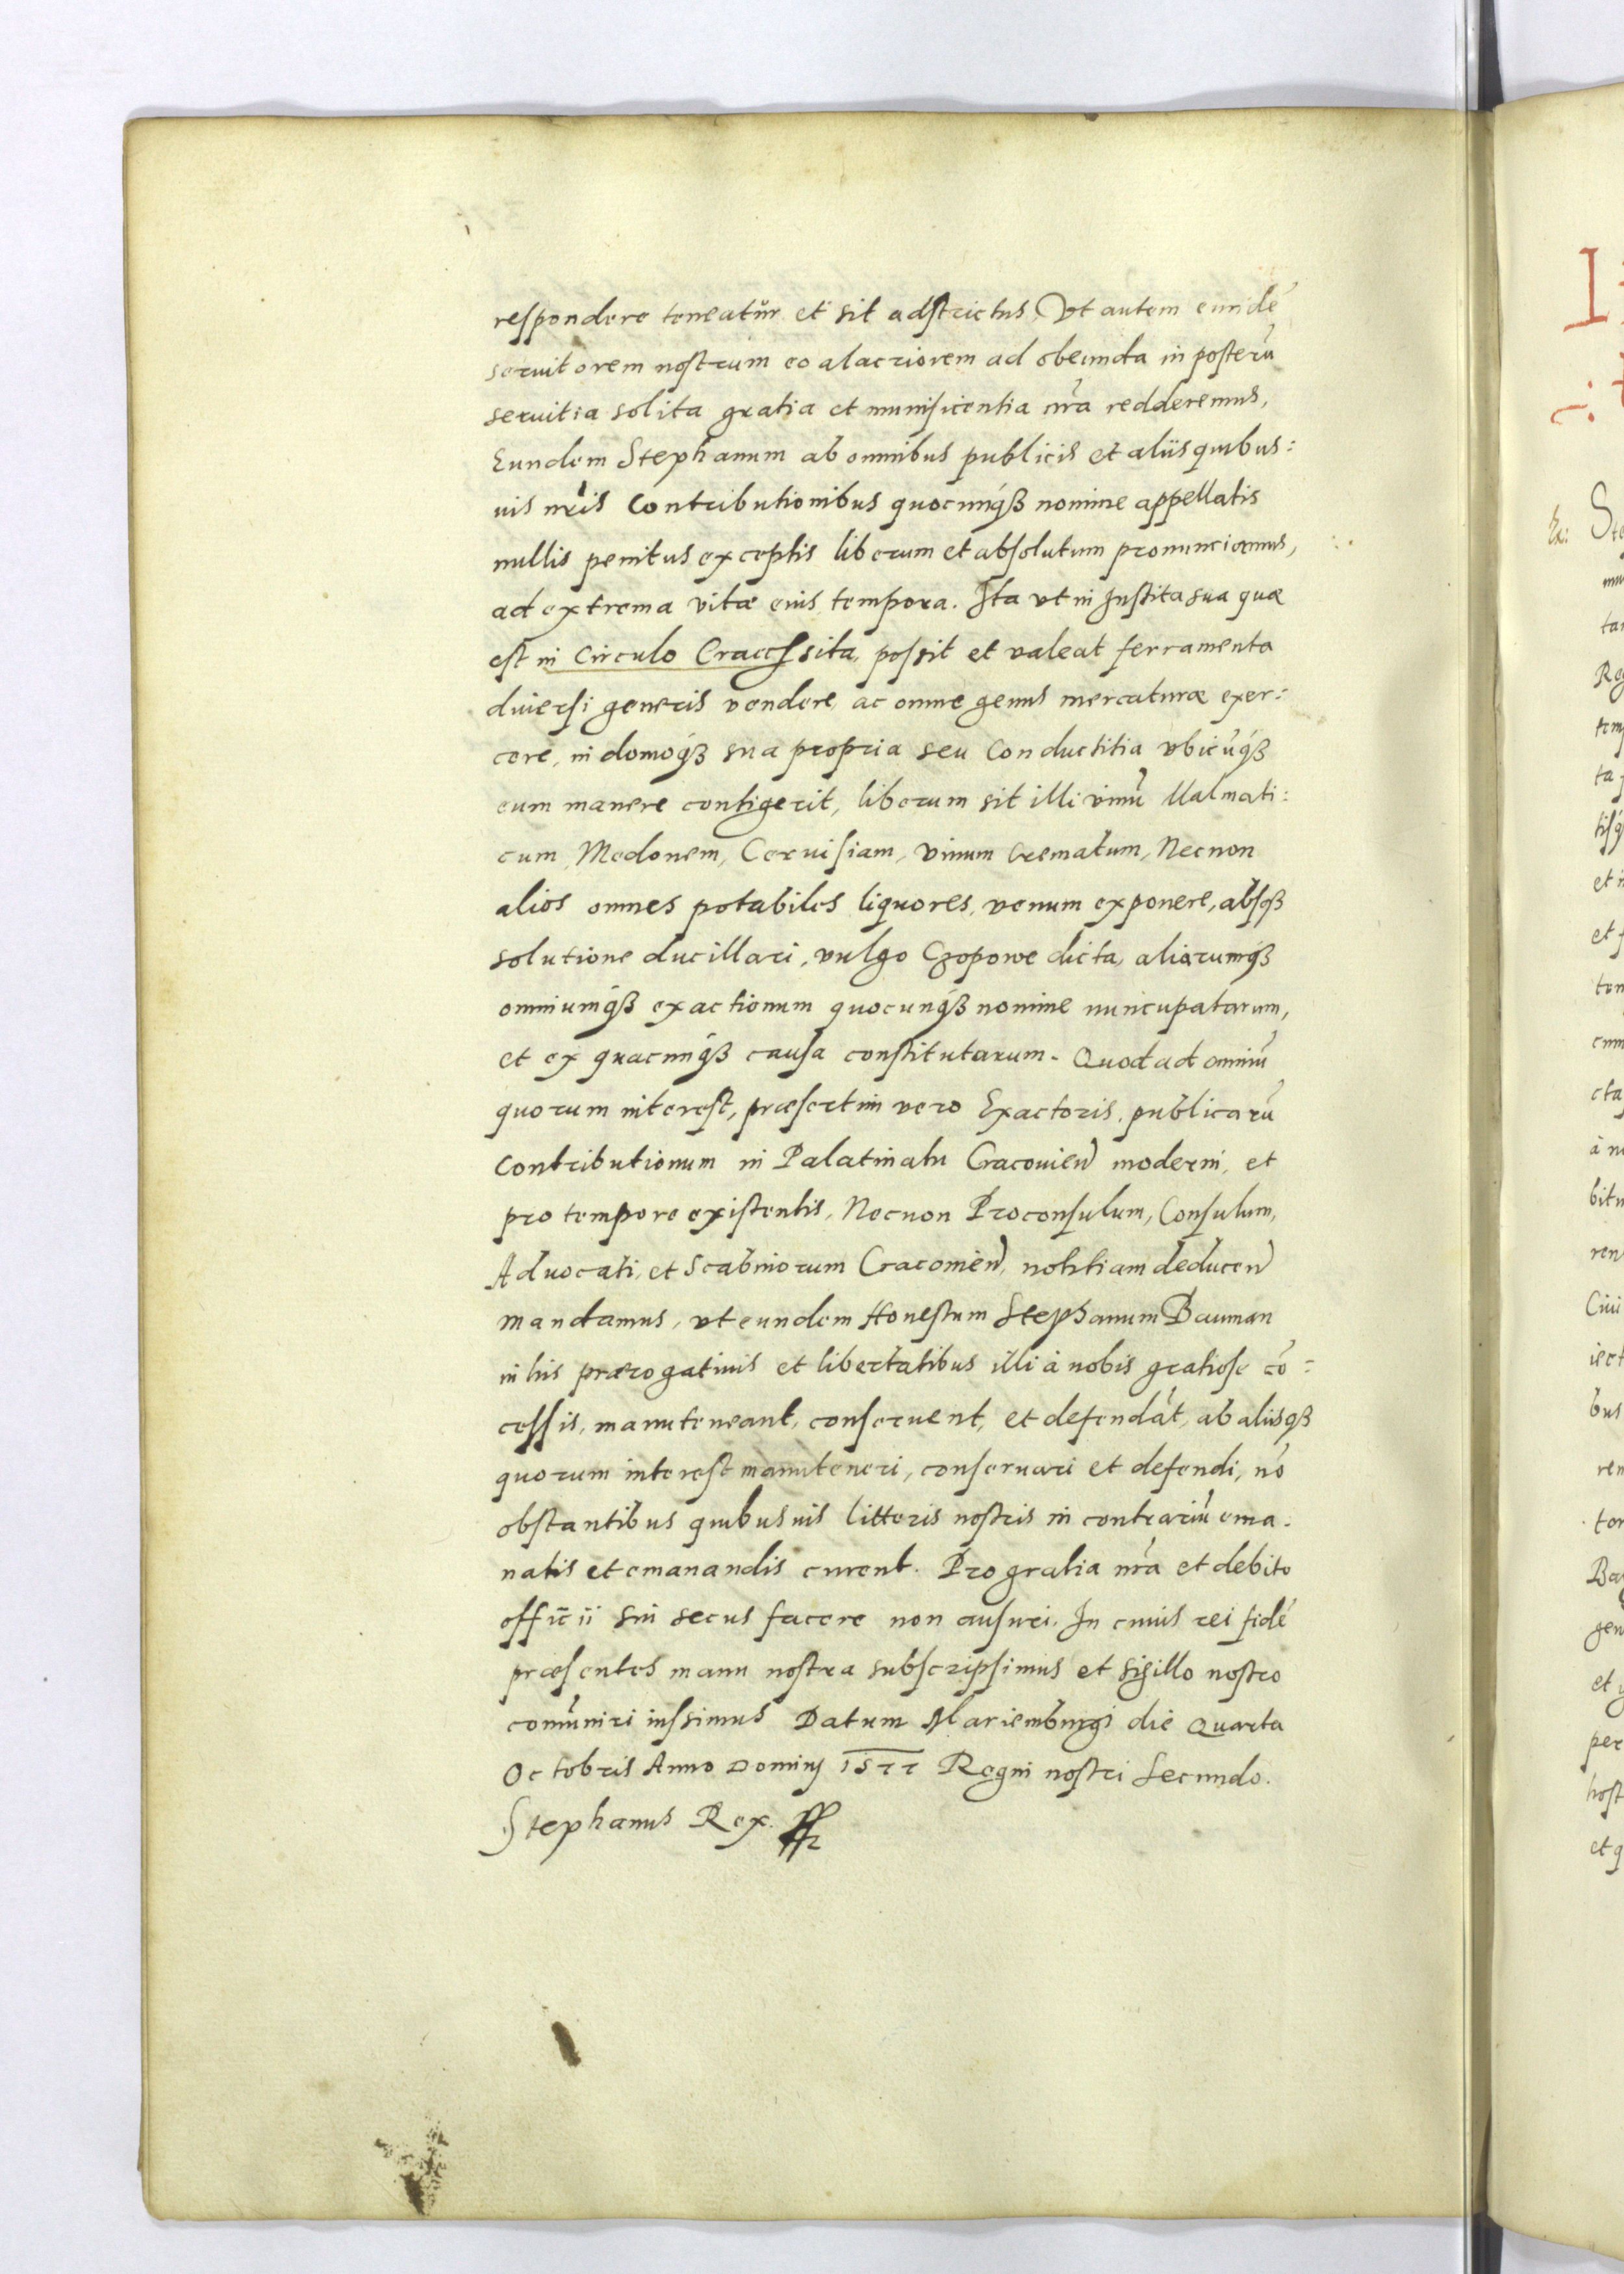 respondere teneatur et sit adstrictus, Vt autem eundē
seruitorem nostrum eo alacriorem ad obeunda in posterū
seruitia solita gratia et munificentia nrā redderemus,
Eundem Stephanum ab omnibus publicis et aliis quibus:
uis nrīs Contributionibus quocunq́ꝫ nomine appellatis
nullis penitus exceptis liberum et absolutum pronunciamus,
ad extrema vitæ eius tempora. Ita vt in Instita sua quæ
est in Circulo sita, possit et valeat ferramenta
diuersi generis vendere ac omne genus mercaturæ exer:
cere, in domoq́ꝫ sua propria seu Conductitia vbicūq́ꝫ
eum manere contigerit, liberum sit illi vinū Malmati:
cum, Medonem, Ceruisiam, vinum Crematum, Necnon
alios omnes potabiles liquores, venum exponere, absqꝫ
solutione ducillari, vulgo Czopowe dicta, aliarumq́ꝫ
omniumq́ꝫ exactionum quocunq́ꝫ nomine nuncupatarum,
et ex quacunq́ꝫ causa constitutarum. Quod ad omniū
quorum interest, præsertim vero Exactoris, publicarū
Contributionum in Palatinatu Cracovień moderni, et
pro tempore existentis, Necnon Proconsulum, Consulum,
Advocati, et Scabinorum Cracovień, notitiam deduceń
mandamus, vt eundem Honestum Stephanum Bauman
in his prærogativis et libertatibus illi à nobis gratiose cō:
cessis, manuteneant, conseruent, et defendāt, ab aliisqꝫ
quorum interest manuteneri, conseruari et defendi, nō
obstantibus quibusuis litteris nostris in contrariū ema:
natis et emanandis curent. Pro gratia nrā et debito
officii sui secus facere non ausuri. In cuius rei fidē
præsentes manu nostra subscripsimus et sigillo nostro
comūniri iussimus Datum Mariemburgi die Quarta
Octobris Anno Dominj 1577 Regni nostri Secundo.
Stephanus Rex.